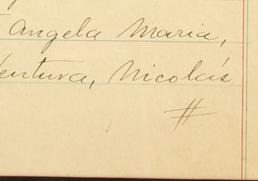 Angela Maria,
entura, Nicolás
#